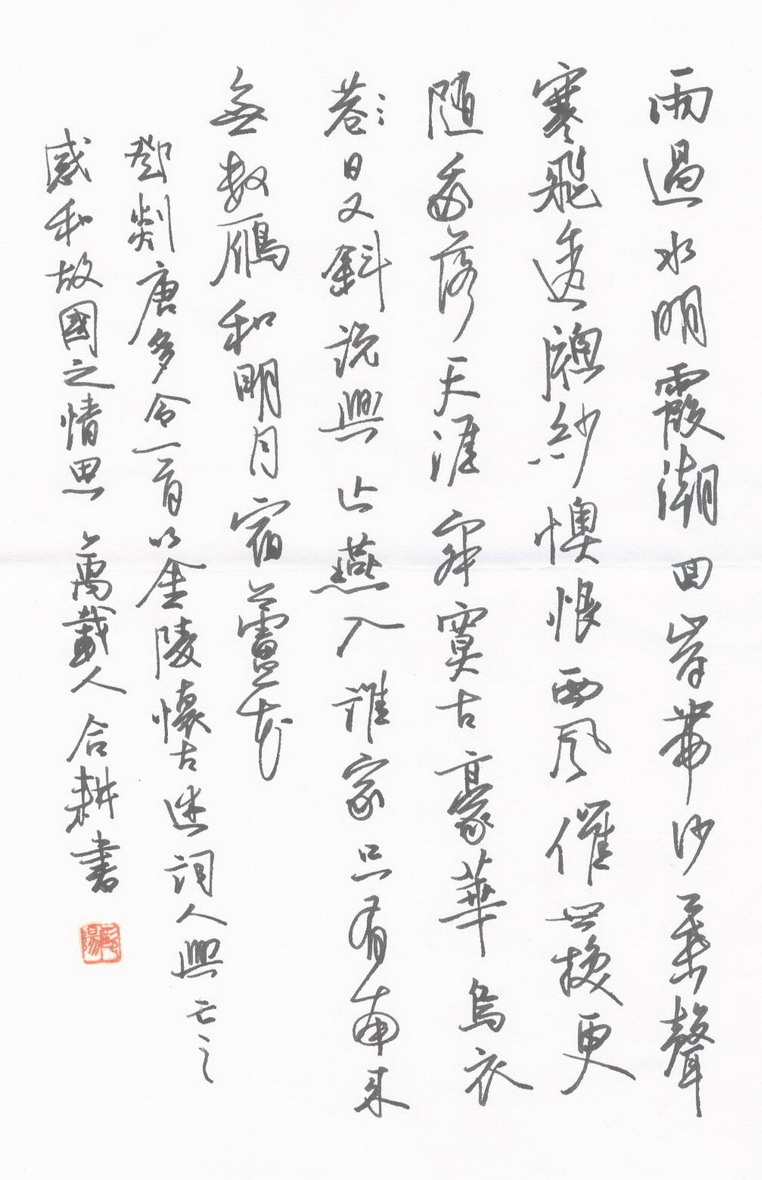 雨過水明霞潮回岸帶沙葉聲
寒飛透牕紗懊恨西風催世換更
随我落天涯寂寞古豪華烏衣
巷日又斜説興亡燕入誰家只有南來
無数鴈和明月宿蘆花
鄧剡唐多令一首以金陵懷古述詞人興亡之
感和故國之情思 萬載人合耕書